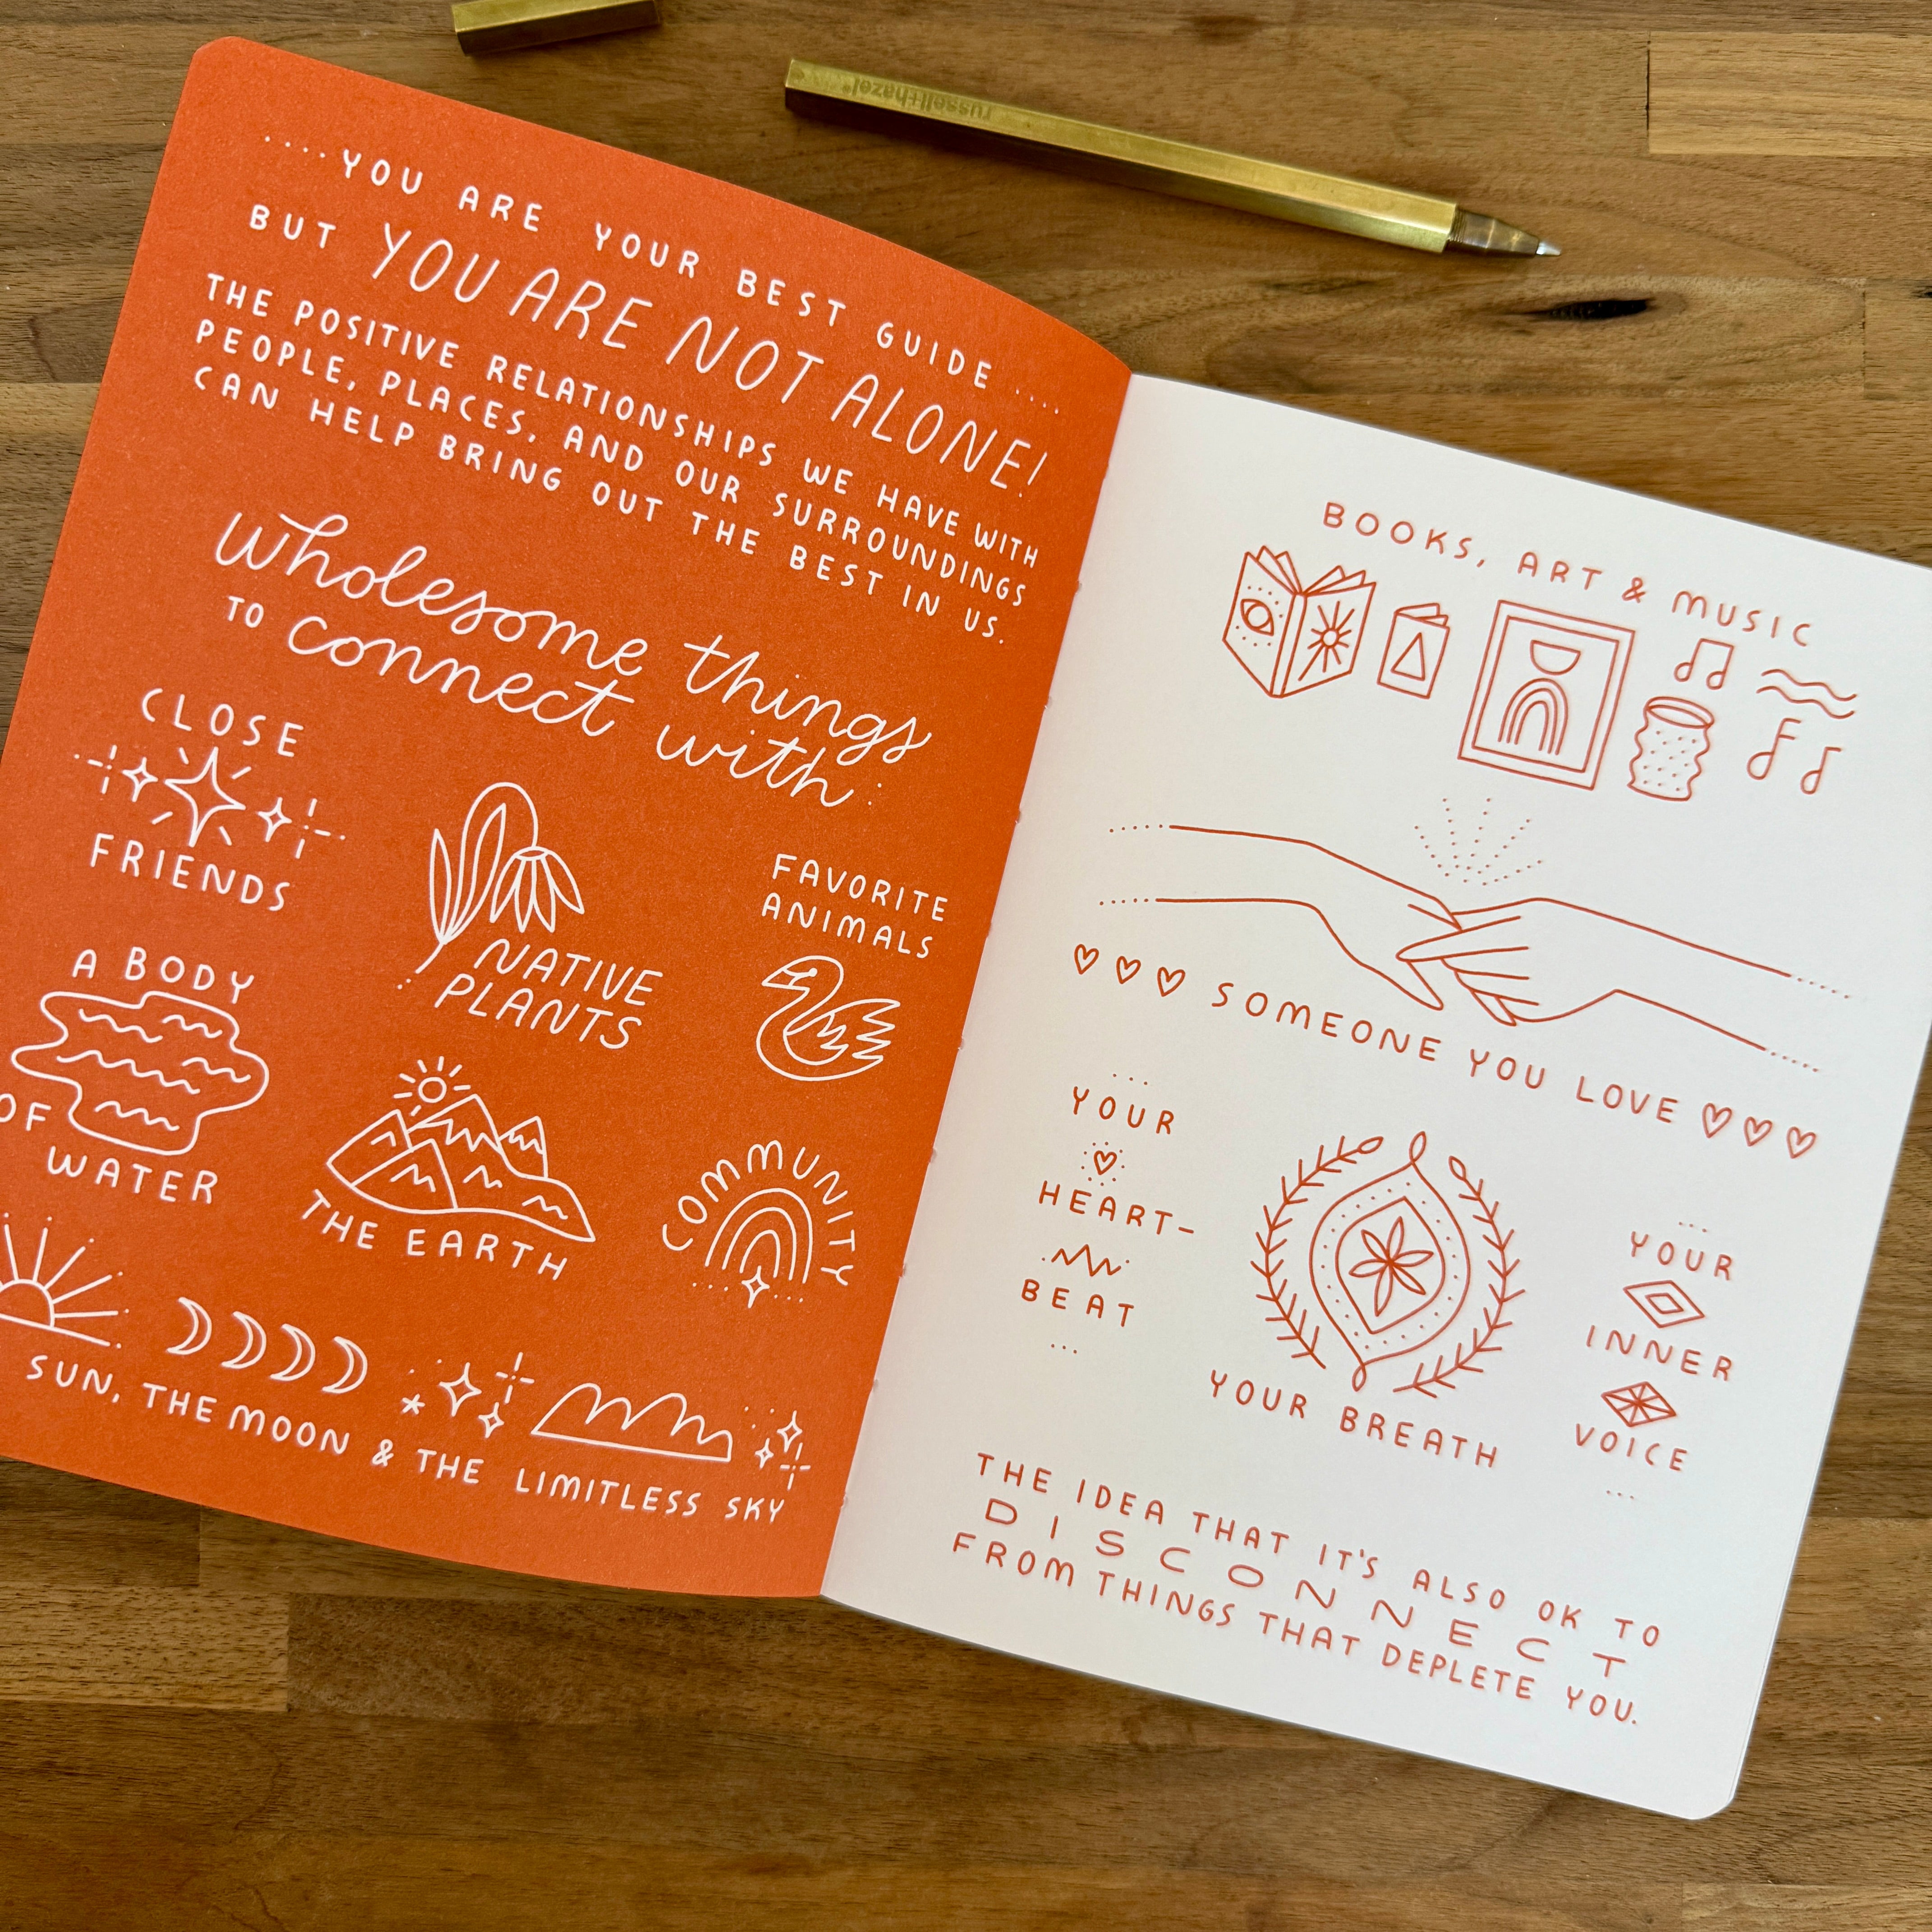 YOU ARE YOUR BEST GUIDE
BUT YOU ARE NOT ALONE!
THE POSITIVE RELATIONSHIPS WE HAVE WITH
PEOPLE, PLACES, AND OUR SURROUNDINGS
CAN HELP BRING OUT THE BEST IN US.
Wholesome things
TO connect with:
CLOSE
FRIENDS
NATIVE
PLANTS
FAVORITE
ANIMALS
A BODY
OF
WATER
THE EARTH
COMMUNITY
SUN, THE MOON & THE LIMITLESS SKY
BOOKS, ART & MUSIC
SOMEONE YOU LOVE
YOUR
HEART-
BEAT
YOUR BREATH
YOUR
INNER
VOICE
THE IDEA THAT IT'S ALSO OK TO
DISCONNECT
FROM THINGS THAT DEPLETE YOU.
russell+hazel